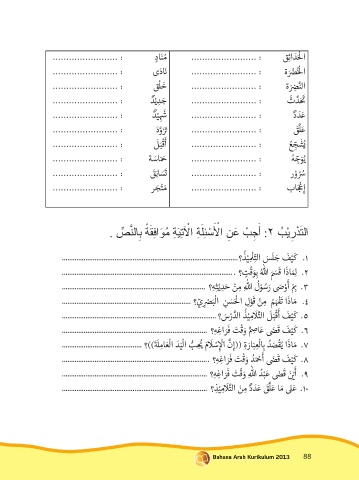 الْحَدَائِق : ........................ 
الْخَضْرَة : ........................
النَّضِرَة : ........................
تَحَدَّثَ : ........................
عَدَدٌ : ........................
عَلَّقَ : ........................
يُشَجِّعُ : ........................
يُوَجِّهُ : ........................
سُرُوْرٌ : ........................
: ........................
: ........................
نَادَى : ........................
خَلْق : ........................
جَدِيْدٌ : ........................
: ........................
تَزَوَّدَ : ........................
أَقْبَلَ : ........................
تَسَابَقَ : ........................
حَمَاسَة : ........................
مَتْجَر : ........................
التَّدْرِيْبُ ٢: أَجِبْ عَنِ الْأَسْئِلَةِ الْآتِيَةِ مُوَافَقَةً بِالنَّصِّ .
١. كَيْفَ جَلَسَ التِّلْمِيْذُ؟
٢. لِمَاذَا قَسَمَ اللهُ وَقْتَ؟
٣. بِمَ أَوْصَى رَسُوْلُ اللهِ مِنْ
٤. مَاذَا تَفْهَمُ مِنْ قَوْلِ الْحَسَنِ الْبَصْرِيِّ؟
٥. كَيْفَ أَقْبَلَ التَّلَامِيْذُ الدَّرْسَ؟
٦. كَيْفَ قَضَى عَاصِمٌ وَقْتَ فَرَاغِهِ؟
٧. مَاذَا يُقْصَدُ بِالْعِبَارَةِ ((إِنَّ الْإِسْلَامَ يُحِبُّ الْيَدَ الْعَامِلَةَ))؟
٨. كَيْفَ قَضَى أَحْمَدُ وَقْتَ فَرَاغِهِ؟
٩. أَيْنَ قَضَى عَبْدُ اللهِ وَقْتَ فَرَاغِهِ؟
١٠. عَلَى مَا عَلَّقَ عَدَدٌ مِنَ التَّلَامِيْذِ؟
Bahasa Arab Kurikulum 2013 88